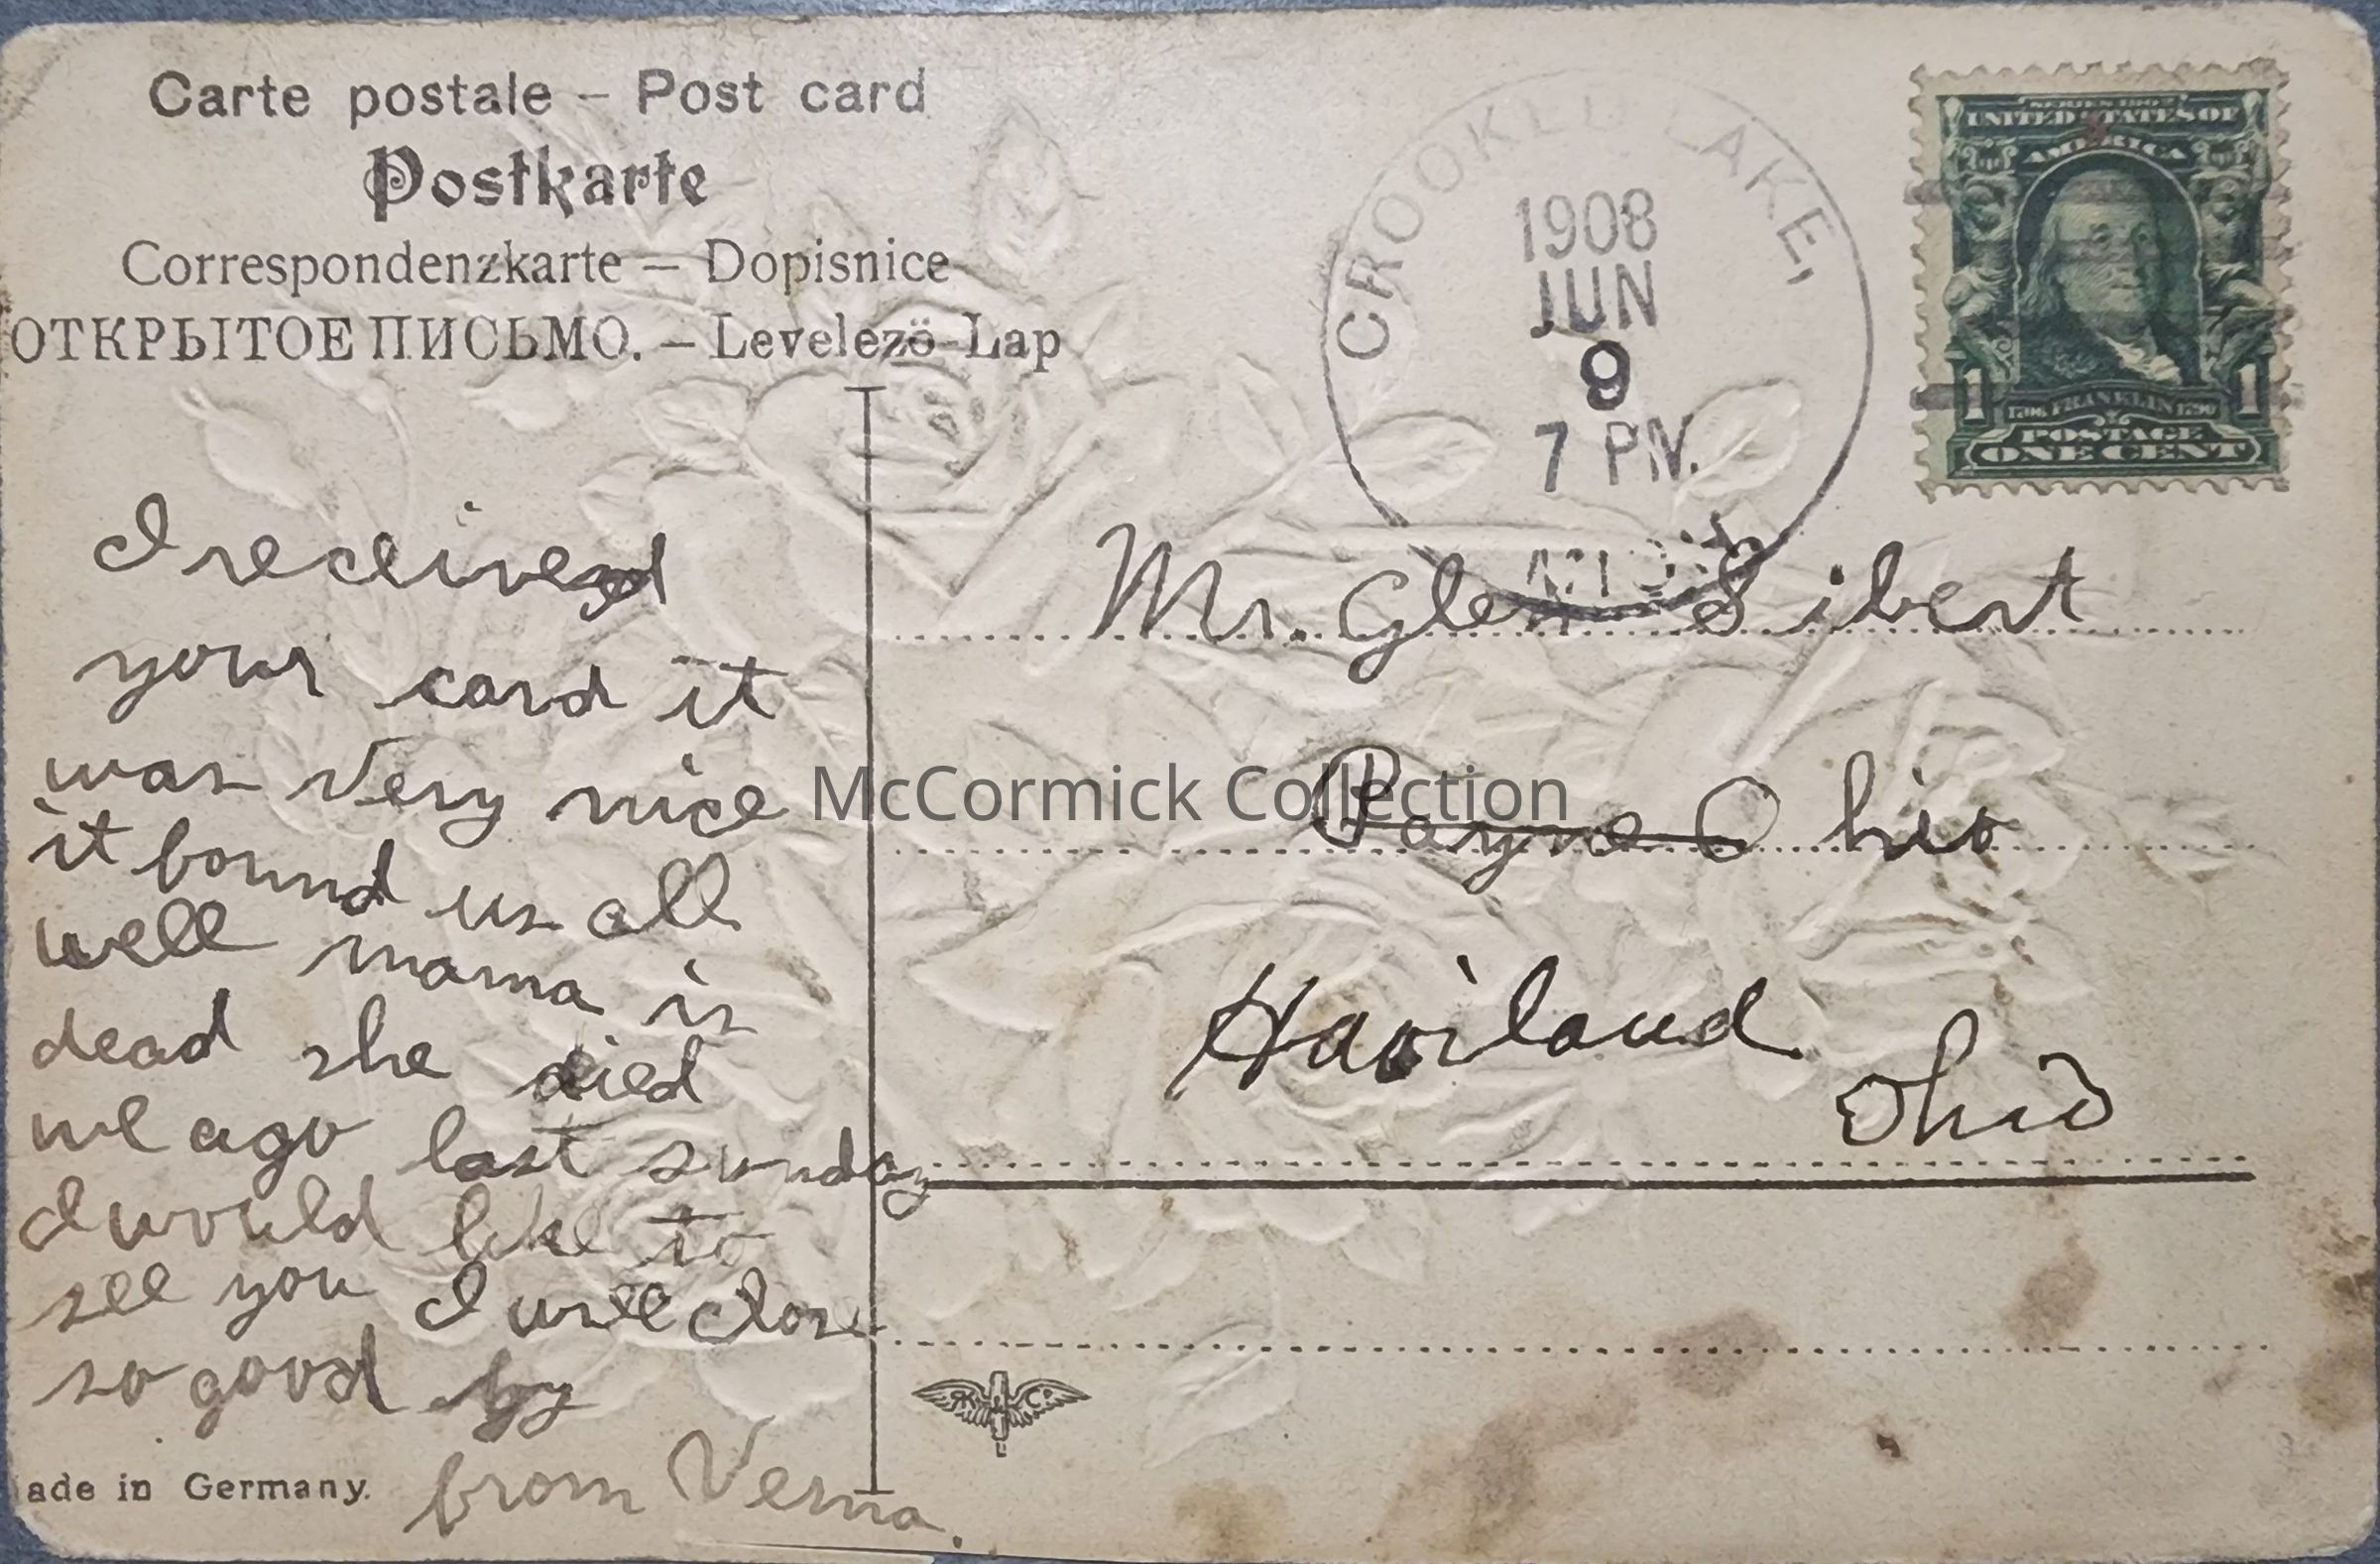 Carte postale – Post card
Postkarte
Correspondenzkarte – Dopisnice
ОТКРЫТОЕ ПИСЬМО. – Levelezö-Lap
CROOKED LAKE,
1908
JUN
9
7 PM.
MICH
SERIES 1902
UNITED STATES OF
AMERICA
1 1706 FRANKLIN 1790 1
POSTAGE
ONE CENT
I received
your card it
was very nice
it found us all
well mama is
dead she died
we ago last sunday
I would like to
see you I will close
so good by
from Verna.
Mr. Glen Sibert
Payne Ohio
Haviland
Ohio
McCormick Collection
ade in Germany.